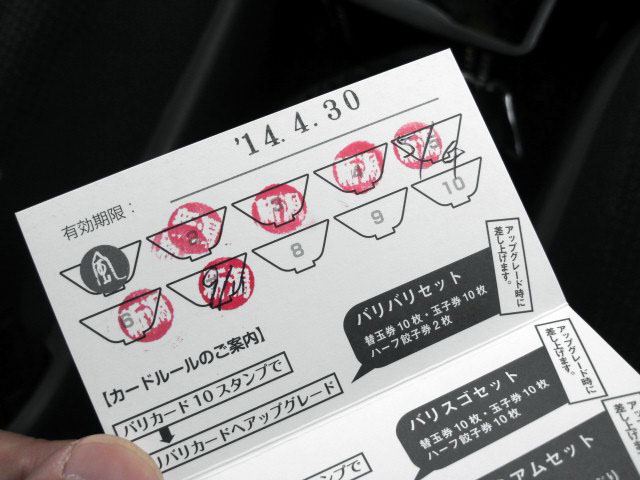 '14.4.30
有効期限：
風
2
3
4
5/6
6
9/11
8
9
10
アップグレード時に
差し上げます。
バリバリセット
替玉券10枚・玉子券10枚
ハーフ餃子券2枚
【カードルールのご案内】
バリカード10スタンプで
バリバリカードへアップグレード
アップグレード時に
差し上げます。
バリスゴセット
替玉券10枚・玉子券10枚
ハーフ餃子券10枚
スタンプで
アムセット